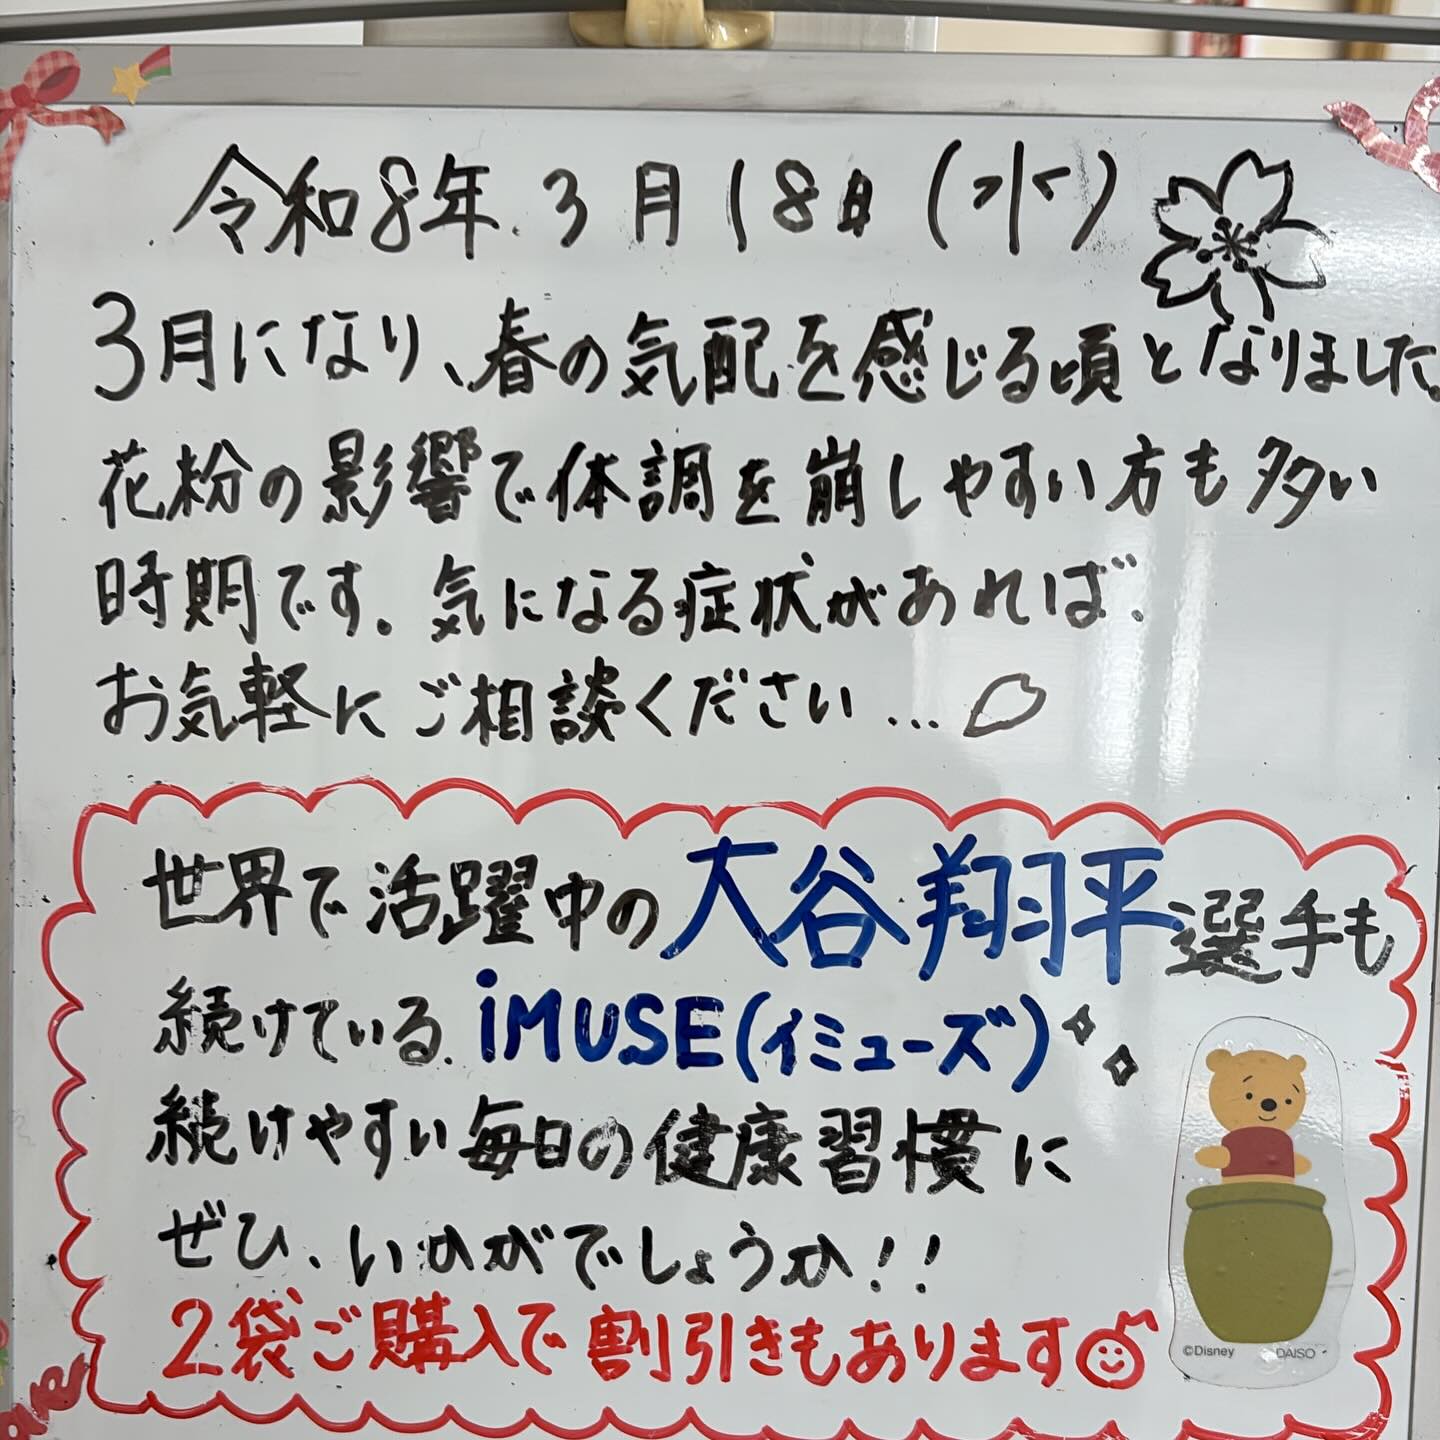 令和8年3月18日(水)
3月になり、春の気配を感じる頃となりました。
花粉の影響で体調を崩しやすい方も多い
時期です。気になる症状があれば、
お気軽にご相談ください...
世界で活躍中の大谷翔平選手も
続けている iMUSE(イミューズ)
続けやすい毎日の健康習慣に
ぜひ、いかがでしょうか!!
2袋ご購入で割引きもあります
©Disney DAISO